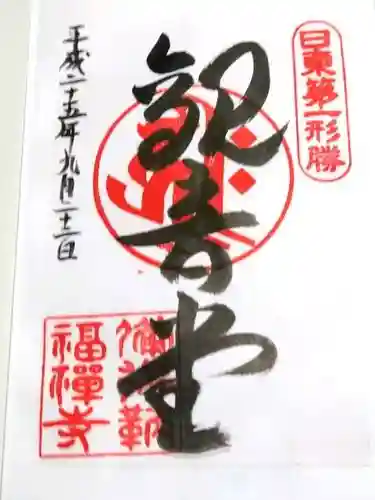 日東第一形勝
観音堂
平成二十五年九月二十二日
福禅寺